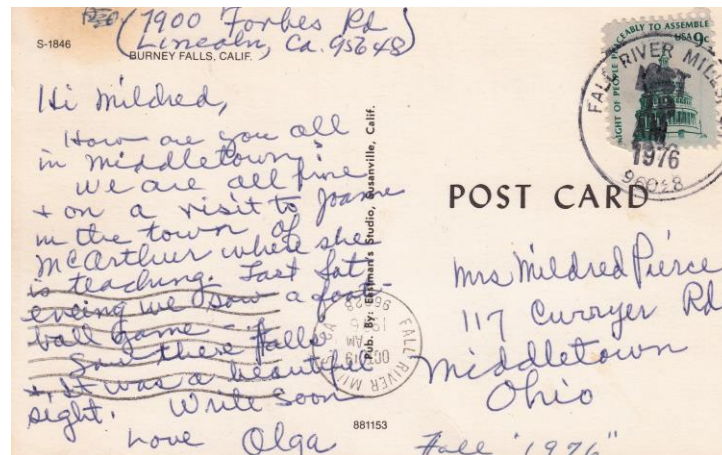 (1900 Forbes Rd
Lincoln, Ca. 95648)
S-1846
BURNEY FALLS, CALIF.
Hi Mildred,
How are you all
in Middletown.
We are all fine
+ on a visit to Joanne
in the town of
McArthur where she
is teaching. Last Sat
eveing we saw a foot-
ball game -
Saw these Falls
+. It was a beautiful
sight. Write soon
Love Olga
881153
Pub. By: Eastman's Studio, Susanville, Calif.
FALL RIVER MILLS
OCT 19
AM
1976
96028
RIGHT OF PEOPLE PEACEABLY TO ASSEMBLE
USA 9c
FALL RIVER MILLS
OCT
AM
1976
96028
POST CARD
Mrs Mildred Pierce
117 Curryer Rd
Middletown
Ohio
Fall "1976"